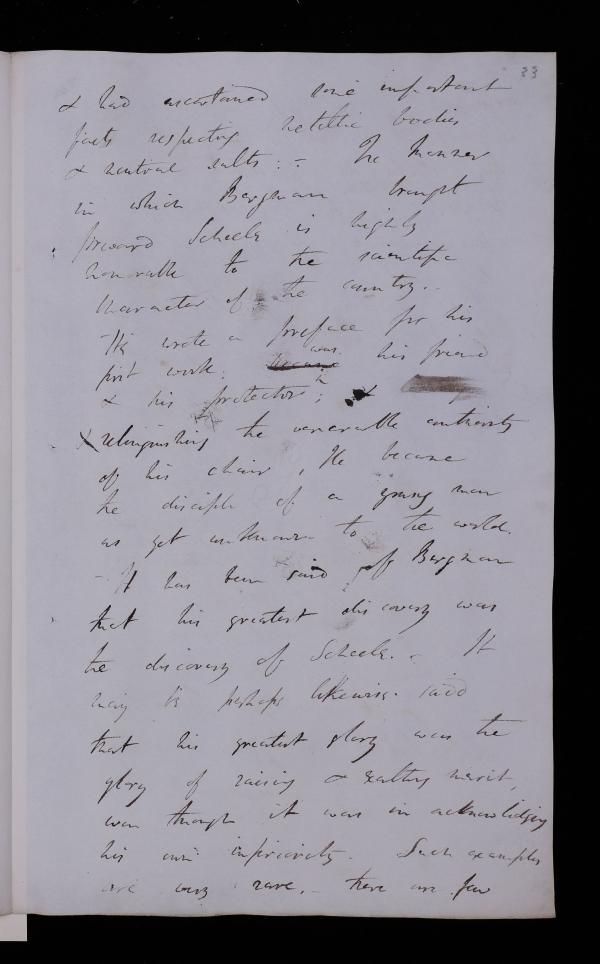 33
& had ascertained some important
facts respecting metallic bodies
& neutral salts: - The manner
in which Bergman brought
forward Scheele is highly
honorable to the scientific
character of the country. -
He wrote a preface for his
first work; was his friend
& his protector; &
relinquishing the venerable authority
of his chair, He became
the disciple of a young man
as yet unknown to the world.
- It has been said of Bergman
that his greatest discovery was
the discovery of Scheele. - It
may be perhaps likewise said
that his greatest glory was the
glory of raising & exalting merit,
even though it was in acknowlidging
his own inferiority. Such examples
are very rare. - there are few